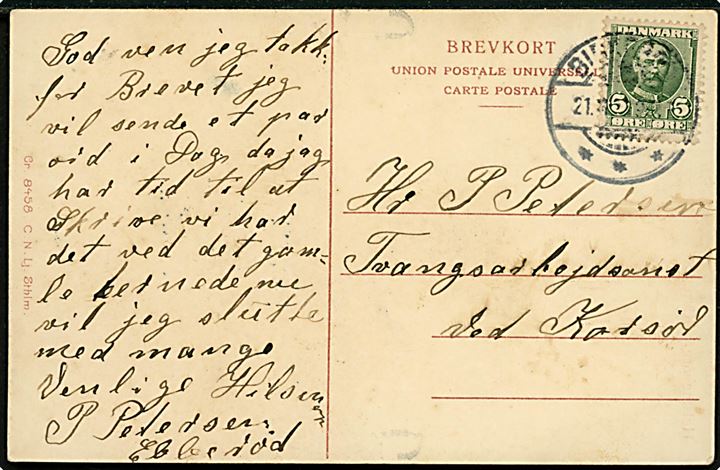 God ven jeg takk-
for Brevet jeg
vil sende et par
ord i Dag da jag
har tid til at
Skrive vi har
det ved det gam-
le hernede nu
vil jeg slutte
med mange
Venlige Hilsen
P Petersen
Ebberød
Gr. 8458 C. N.s Lj. Sthlm.
BREVKORT
UNION POSTALE UNIVERSELLE
CARTE POSTALE
DANMARK
5 5
ØRE ØRE
21.
Hr P Petersen
Tvangsarbejdsanst
ved Korsør